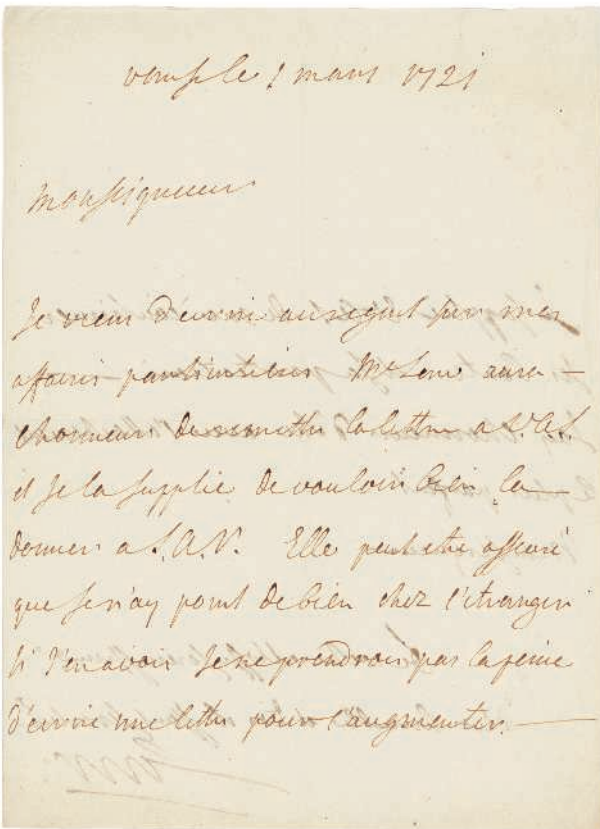 venise le 1 mars 1721
Monseigneur
Je viens d'ecrire au regent sur mes
affaires particulieres Mr Law aura
l'honneur de remettre la lettre a S.A.S.
et Je la supplie de vouloir bien la
donner a S.A.R. Elle peut etre asseuré
que Je n'ay point de bien chez l'etranger
si J'en avois Je ne prendrois pas la peine
d'ecrire une lettre pour l'augmenter.